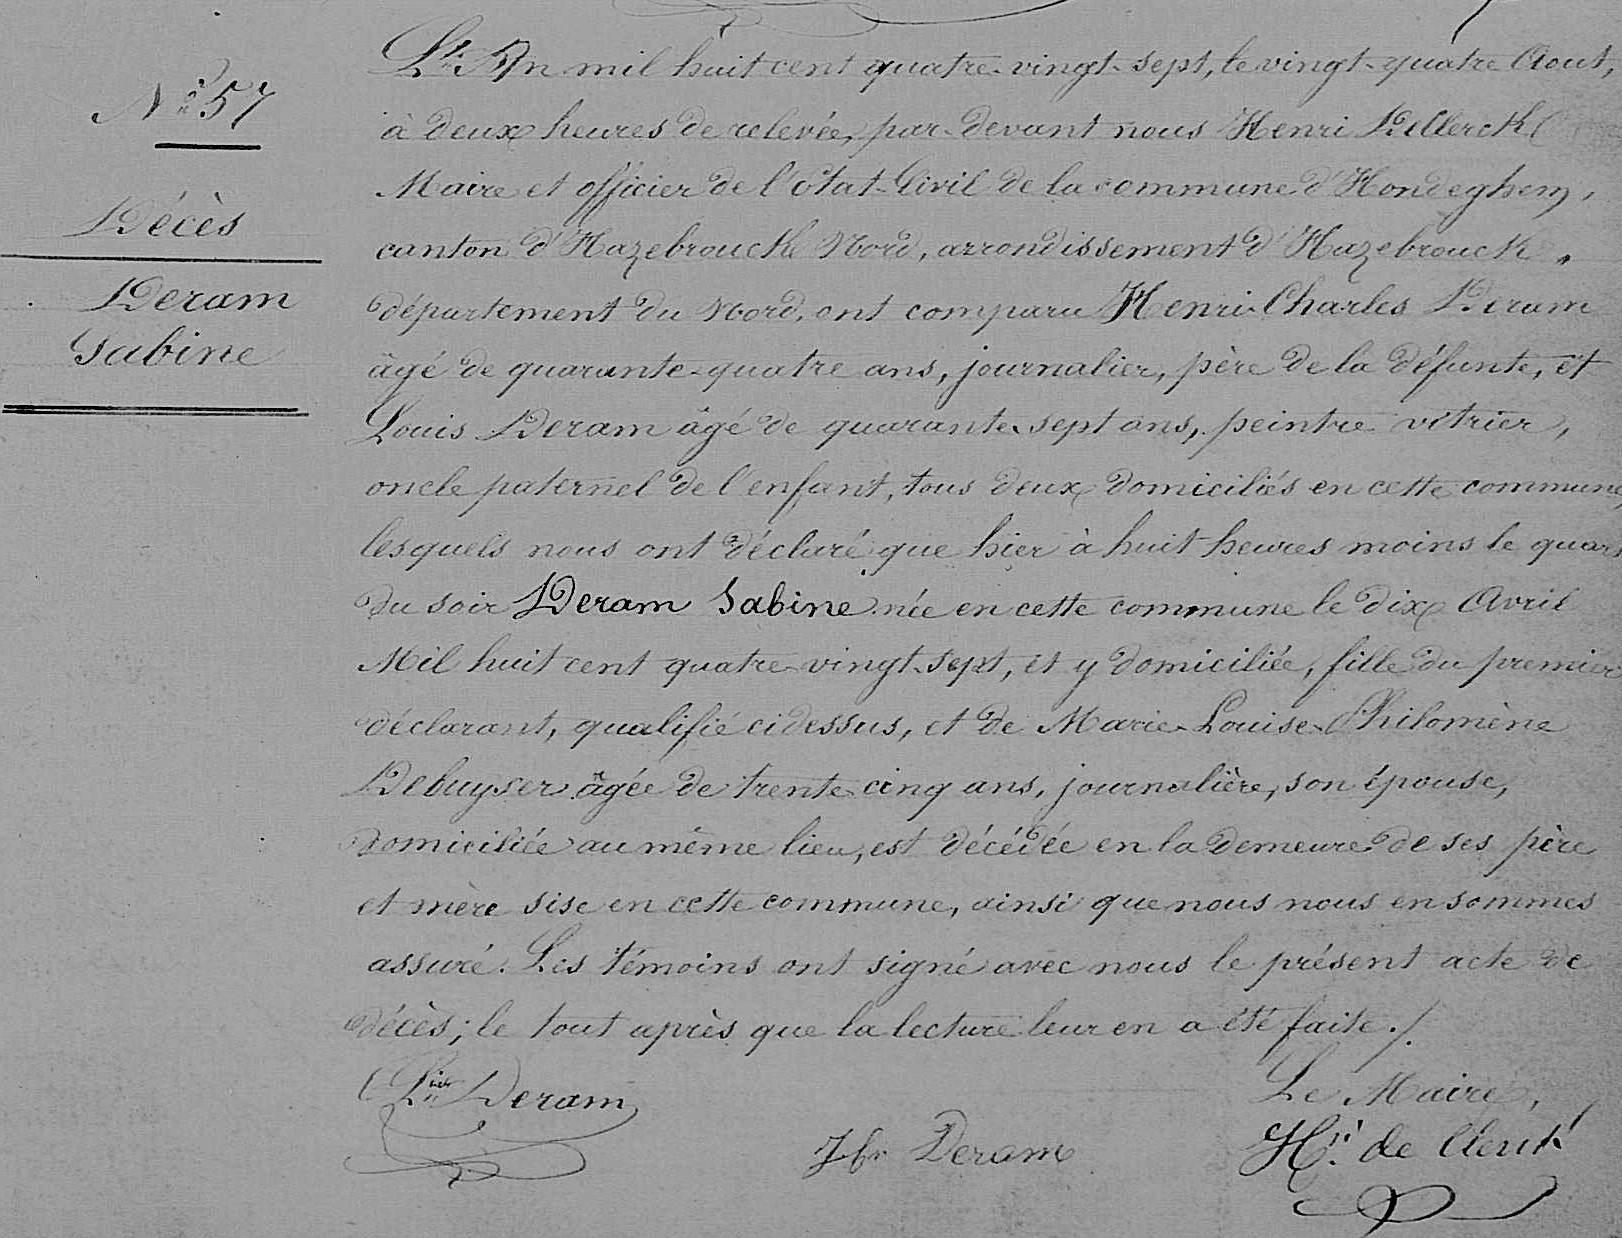 N° 57
Décès
Deram
Sabine
L'An mil huit cent quatre-vingt-sept, le vingt-quatre Aout,
à deux heures de relevée, par-devant nous Henri Declerck
Maire et officier de l'état-Civil de la commune d'Hondeghem,
canton d'Hazebrouck Nord, arrondissement d'Hazebrouck,
département du Nord, ont comparu Henri-Charles Deram
âgé de quarante-quatre ans, journalier, père de la défunte, et
Louis Deram âgé de quarante-sept ans, peintre vitrier,
oncle paternel de l'enfant, tous deux domiciliés en cette commune,
lesquels nous ont déclaré que hier à huit heures moins le quart
du soir Deram Sabine née en cette commune le dix Avril
Mil huit cent quatre-vingt-sept, et y domiciliée, fille du premier
déclarant, qualifié ci dessus, et de Marie-Louise-Philomène
Debuyser âgée de trente-cinq ans, journalière, son épouse,
domiciliée au même lieu, est décédée en la demeure de ses père
et mère sise en cette commune, ainsi que nous nous en sommes
assuré. Les témoins ont signé avec nous le présent acte de
décès; le tout après que la lecture leur en a été faite ./.
Deram
Le Maire,
Deram
Hri de Clerck